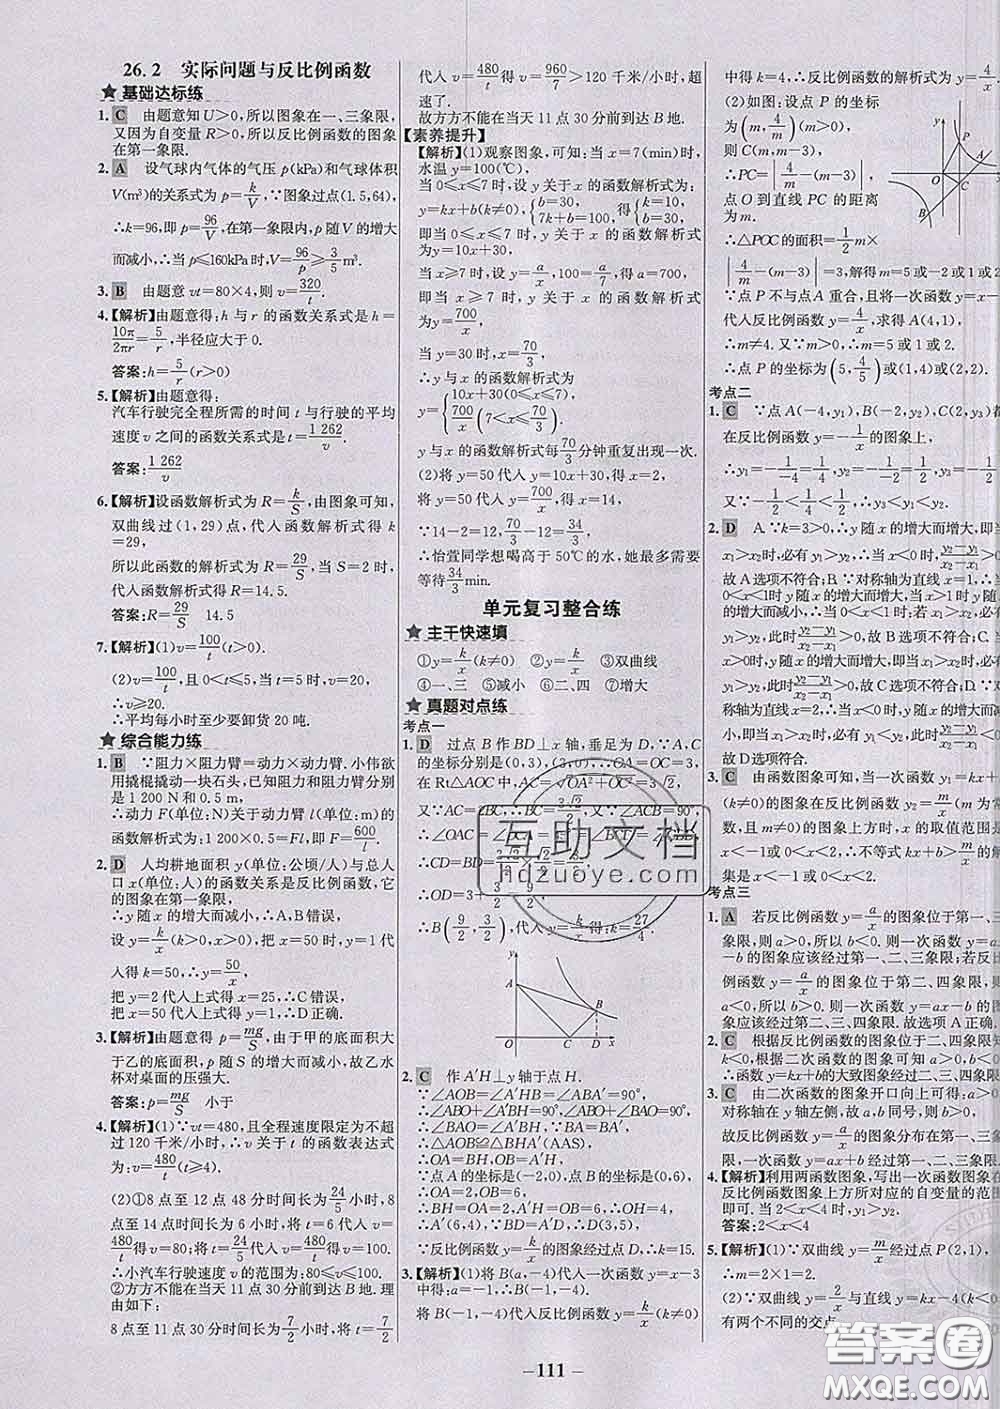 26.2 实际问题与反比例函数
★ 基础达标练
1. C 由题意知U>0,所以图象在一、三象限,
又因为自变量R>0,所以反比例函数的图象
在第一象限.
2. A 设气球内气体的气压 p(kPa)和气球体积
V(m³)的关系式为 p=k/V,∵图象过点(1.5,64),
∴k=96,即 p=96/V,在第一象限内,p随V的增大
而减小,∴当 p≤160kPa时,V=96/p≥3/5 m³.
3. B 由题意 vt=80×4,则 v=320/t.
4.【解析】由题意得:h 与 r 的函数关系式是 h=
10π/2πr=5/r,半径应大于0.
答案:h=5/r(r>0)
5.【解析】由题意得:
汽车行驶完全程所需的时间 t 与行驶的平均
速度 v 之间的函数关系式是 t=1 262/v.
答案:1 262/v
6.【解析】设函数解析式为 R=k/S,由图象可知,
双曲线过(1,29)点,代入函数解析式得 k
=29,
所以此函数的解析式为 R=29/S,当 S=2 时,
代入函数解析式得 R=14.5.
答案:R=29/S 14.5
7.【解析】(1)v=100/t(t>0).
(2)v=100/t,当 0<t≤5 时,
∴v≥20.
∴平均每小时至少要卸货 20 吨.
★ 综合能力练
1. B ∵阻力×阻力臂=动力×动力臂.小伟欲
用撬棍撬动一块石头,已知阻力和阻力臂分别
是1 200 N 和 0.5 m,
∴动力 F(单位:N)关于动力臂 l(单位:m)的
函数解析式为:1 200×0.5=Fl,即 F=600/l.
2. D 人均耕地面积 y(单位:公顷/人)与总人
口 x(单位:人)的函数关系是反比例函数,它
的图象在第一象限,
∴y 随 x 的增大而减小,∴A,B错误,
设 y=k/x(k>0,x>0),把 x=50时,y=1 代
入得 k=50,∴y=50/x,
把 y=2代入上式得 x=25,∴C错误,
把 x=50代入上式得 y=1,∴D正确.
3.【解析】由题意得 p=mg/S,由于甲的底面积大
于乙的底面积,p 随S的增大而减小,故乙水
杯对桌面的压强大.
答案:p=mg/S 小于
4.【解析】(1)∵vt=480,且全程速度限定为不超
过 120 千米/小时,∴v 关于 t 的函数表达式
为:v=480/t(t≥4).
(2)①8 点至 12 点 48 分时间长为 24/5 小时,8
点至 14 点时间长为 6 小时,将 t=6 代入 v=
480/t得 v=80;将 t=24/5代入 v=480/t得 v=100.
∴小汽车行驶速度 v 的范围为:80≤v≤100.
②方方不能在当天 11 点 30 分前到达 B 地.理
由如下:
8 点至 11 点 30 分时间长为 7/2 小时,将 t=7/2
代入 v=480/t得 v=960/7>120 千米/小时,超
速了.
故方方不能在当天11点30分前到达B地.
【素养提升】
【解析】(1)观察图象,可知:当 x=7(min)时,
水温 y=100(℃),
当 0≤x≤7 时,设 y 关于 x 的函数解析式为:
y=kx+b(k≠0),{b=30, 7k+b=100得{k=10, b=30,
即当 0≤x≤7 时,y 关于 x 的函数解析式
为 y=10x+30,
当 x≥7 时,设 y=a/x,100=a/7,得 a=700,
即当 x≥7 时,y 关于 x 的函数解析式为
y=700/x,
当 y=30 时,x=70/3,
∴y 与 x 的函数解析式为
y={10x+30(0≤x≤7), 700/x(7<x≤70/3),
y 与 x 的函数解析式每70/3分钟重复出现一次.
(2)将 y=50 代入 y=10x+30,得 x=2,
将 y=50 代入 y=700/x,得 x=14,
∵14-2=12,70/3-12=34/3,
∴怡萱同学想喝高于 50℃的水,她最多需要
等待34/3min.
单元复习整合练
★ 主干快速填
①y=k/x(k≠0) ②y=k/x ③双曲线
④一、三 ⑤减小 ⑥二、四 ⑦增大
★ 真题对点练
考点一
1. D 过点 B 作BD⊥x 轴,垂足为 D,∵A,C
的坐标分别是(0,3),(3,0),∴OA=OC=3,
在Rt△AOC 中,AC=√OA²+OC²=3√2,
又∵AC=2BC,∴BC=3√2/2,又∵∠ACB=90°,
∴∠OAC=∠OCA=45°=∠BCD=∠CBD,
∴CD=BD=3√2/2×√2/2=3/2,
∴OD=3+3/2=9/2,
∴B(9/2,3/2),代入 y=k/x得:k=27/4.
y
A
B
O C D x
2. C 作 A′H⊥y 轴于点 H.
∵∠AOB=∠A′HB=∠ABA′=90°,
∴∠ABO+∠A′BH=90°,∠ABO+∠BAO=90°,
∴∠BAO=∠A′BH,∵BA=BA′,
∴△AOB≌△BHA′(AAS),
∴OA=BH,OB=HA′,
∵点 A 的坐标是(-2,0),点 B 的坐标是(0,6),
∴OA=2,OB=6,
∴BH=OA=2,A′H=OB=6,∴OH=4,
∴A′(6,4),∵BD=A′D,∴D(3,5),
∵反比例函数 y=k/x的图象经过点 D,∴k=15.
3.【解析】(1)将 B(a,-4)代入一次函数 y=x-3
中得:a=-1,∴B(-1,-4),
将 B(-1,-4)代入反比例函数 y=k/x(k≠0)
中得 k=4,∴反比例函数的解析式为 y=4/x.
(2)如图:设点 P 的坐标
为(m,4/m)(m>0),
则C(m,m-3),
∴PC=|4/m-(m-3)|,
点 O 到直线 PC 的距离
为 m.
∴△POC 的面积=1/2 m×
|4/m-(m-3)|=3,解得:m=5或-2或1或2,
∵点 P 不与点 A 重合,且将一次函数
代入反比例函数 y=4/x,求得 A(4,1),
∴m≠4.又∵m>0,∴m=5或1或2,
∴点 P 的坐标为(5,4/5)或(1,4)或(2,2).
考点二
1. C ∵点 A(-4,y₁),B(-2,y₂),C(2,y₃)都
在反比例函数 y=-1/x的图象上,
又∵-1/2<1/4<1/2,∴y₃<y₁<y₂.
2. D A.∵k=3>0,∴y 随 x 的增大而增大,即
故 A 选项不符合;B.∵对称轴为直线 x=1,当
故 D 选项符合.
3. C 由函数图象可知,当一次函数 y₁=kx+b
的图象在反比例函数 y₂=m/x(m为常
数,且 m≠0)的图象上方时,x 的取值范围是
集是 x<-1或0<x<2.
考点三
1. A 若反比例函数 y=a/x的图象位于第一、三
象限,则 a>0,所以 b<0.则一次函数 y=ax
-b 的图象应该经过第一、二、三象限;若反比
例函数 y=a/x的图象位于第二、四象限,则
a<0,所以 b>0.则一次函数 y=ax-b 的图
象应该经过第二、三、四象限.故选项A正确.
2. C 根据反比例函数的图象位于二、四象限知
∴函数 y=kx-k的大致图象经过一、二、四象
3. C 由二次函数的图象开口向上可得:a>0,
对称轴在 y 轴左侧,故a,b同号,则 b>0,
故反比例函数 y=a/x的图象分布在第一、三象
限,一次函数 y=ax+b 的图象经过第一、二、三
4.【解析】利用两函数图象,写出一次函数图象在
反比例函数图象上方所对应的自变量的范围
即可.当 2<x<4时,
答案:2<x<4
5.【解析】(1)∵双曲线 y=m/x经过点 P(2,1),
∴m=2×1=2.
(2)∵双曲线 y=2/x与直线 y=kx-4(k<0)
有两个不同的交点,
互助文档
hdzuoye.com
答案圈
MXQE.COM
–111–